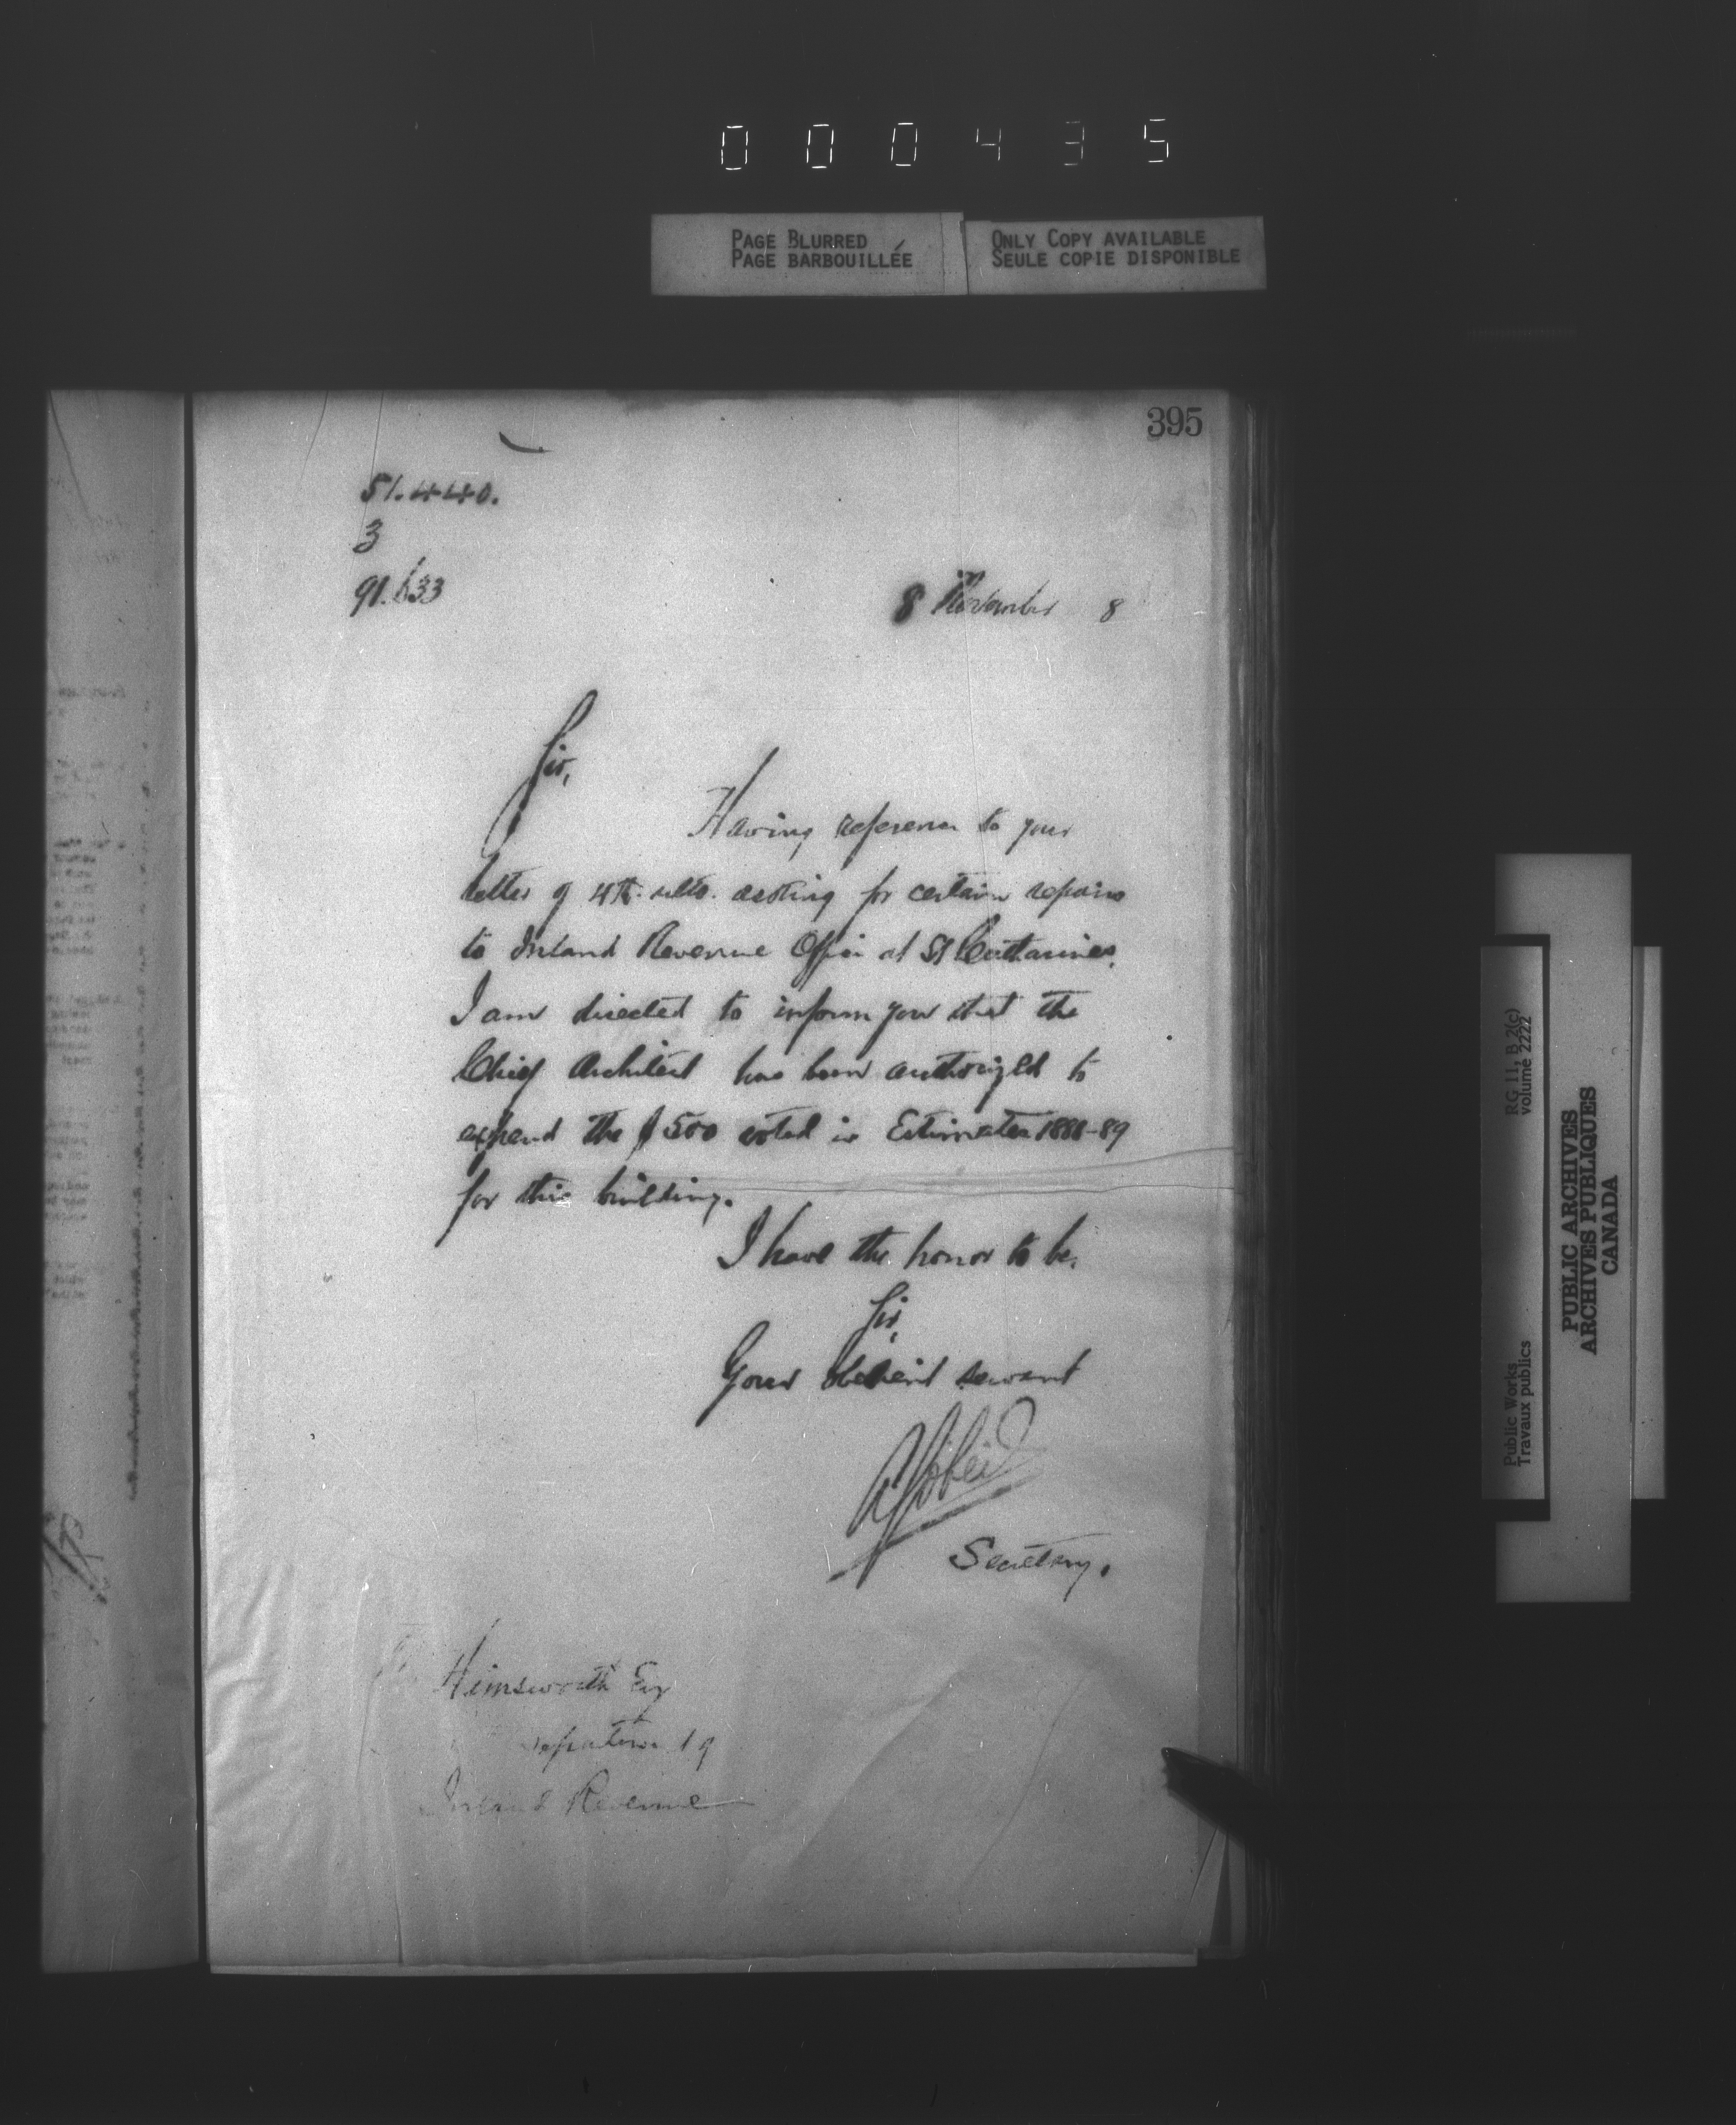 000435
PAGE BLURRED
PAGE BARBOUILLÉE
ONLY COPY AVAILABLE
SEULE COPIE DISPONIBLE
395
51.440.
3
91.633
8 November 8
Sir,
Having reference to your
letter of 4th. ulto. asking for certain repairs
to Inland Revenue Office at St Catharines,
I am directed to inform you that the
Chief Architect has been authorized to
expend the $500 voted in Estimates 1888-89
for this building.
I have the honor to be,
Sir,
Your obedient servant
Secretary.
Himsworth Esq
Inland Revenue
RG 11, B 2(c)
volume 2222
Public Works
Travaux publics
PUBLIC ARCHIVES
ARCHIVES PUBLIQUES
CANADA